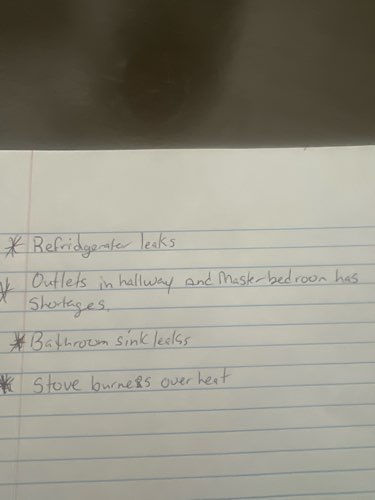 * Refridgerater leaks
* Outlets in hallway and Master bedroom has
shortages.
* Bathroom sink leaks
* Stove burners over heat